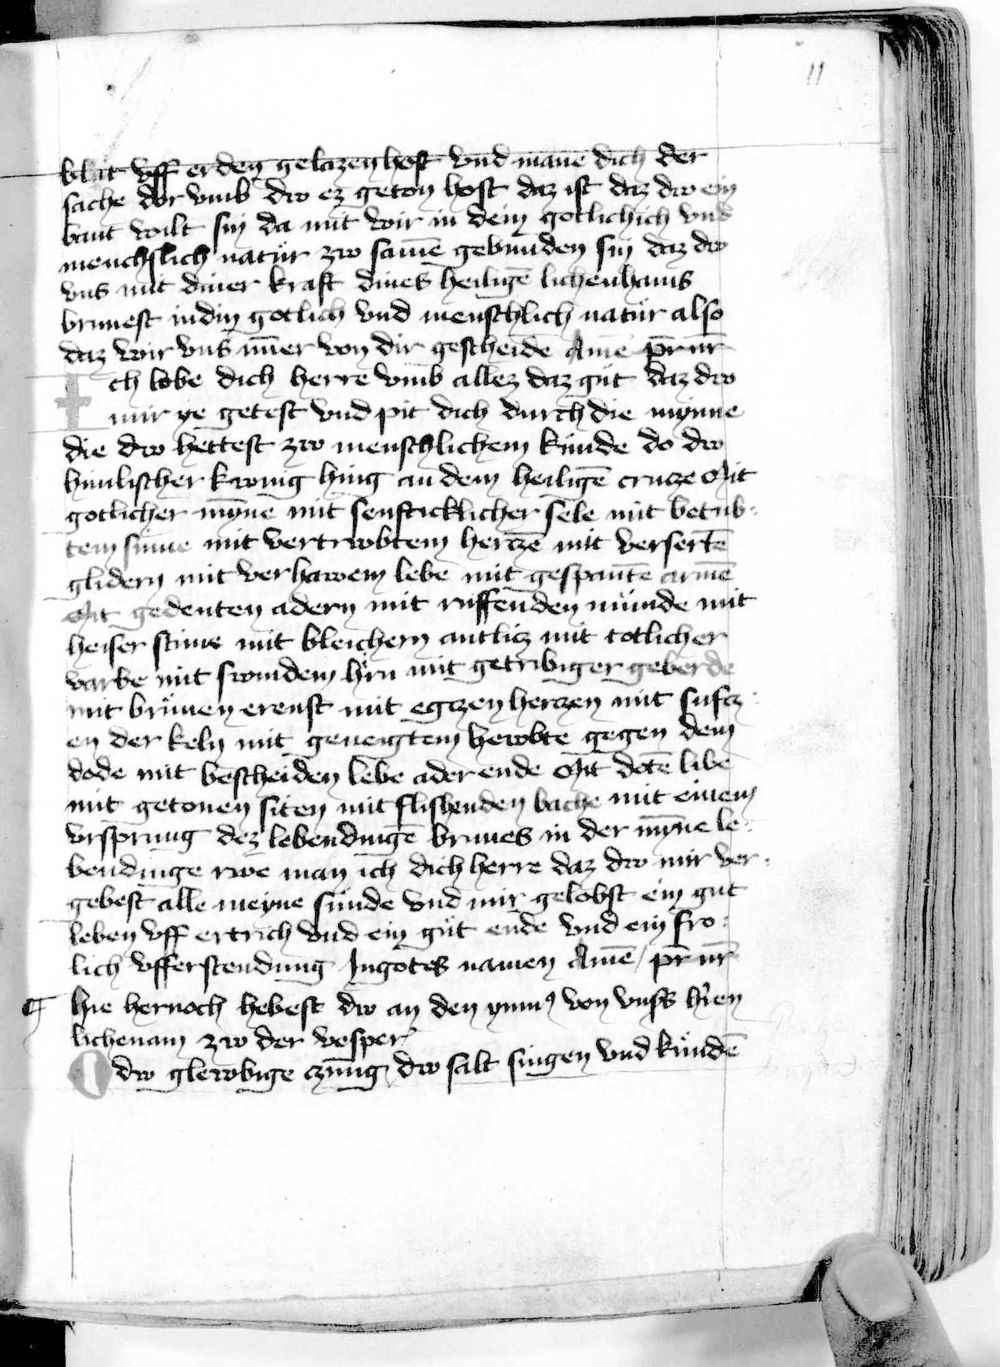 11
blůt vff erden gelazen host vnd mane dich der
sache dor vmb dw ez geton host daz ist daz dw ein
bant wilt sin da mit wir in dein gotlichich vnd
menchslich natůr zw samē gebunden sin daz dw
vns mit diner kraft dines heiligē lichenhams
brinnest in din gotlich vnd menschlich natůr also
daz wir vns nim̄er von dir gescheide Amē pr̄ nr̄
Ich lobe dich herre vmb allez daz gůt daz dw
mir ye getest vnd pit dich durch die mynne
die dw hettest zw menschlichem kůnde do dw
himlischer kwnig hing an dem heiligē crucze Mit
gotlicher mȳne mit senfticklicher sele mit betrub⸗
tem sinne mit vertrwbtem hertzē mit versertē
glidern mit verhawem lebe mit gespantē armē
Mit gedenten adern mit ruffenden můnde mit
heiser stime mit bleichem antlicz mit totlicher
varbe mit swindem hirn mit getribiger geberde
mit brůnen erenst mit egtzen hertzen mit sufcz⸗
en der keln mit geneigtem hewbte gegen dem
dode mit bescheiden lebē ader ende Mit dotē libe
mit getonen siten mit flishenden bache mit einem
vrsprung dez lebendingē brunes in der mȳne le⸗
bendinge rwe man ich dich herre daz dw mir ver⸗
gebest alle meyne sůnde vnd mir gelobst ein gut
leben vff ertrich vnd ein gůt ende vnd ein fro⸗
lich vfferstendung Ingotes namen Amē / pr̄ nr̄
¶ hie hernoch hebest dw an den ymnꝰ von vnsꝰs hˀren
lichenam zw der vesper
O dw glewbige czūng dw salt singen vnd kůndē